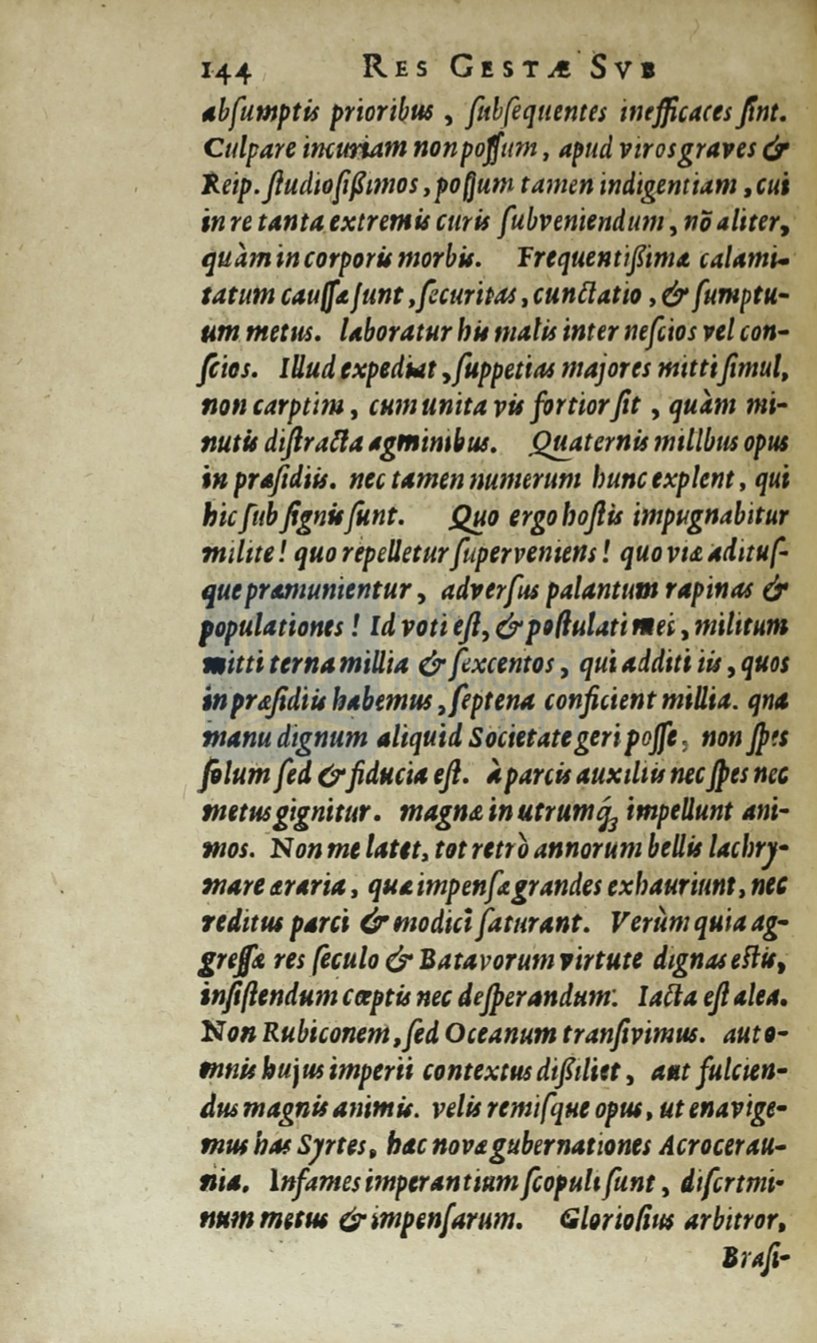 144 RES GESTÆ SVB
abſumptis prioribus, ſubſequentes inefficaces ſint.
Culpare incuriam non poſſum, apud viros graves &
Reip. ſtudioſiſſimos, poſſum tamen indigentiam, cui
in re tanta extremis curis ſubveniendum, nõ aliter,
quàm in corporis morbis. Frequentiſſimæ calami-
tatum cauſſæ ſunt, ſecuritas, cunctatio, & ſumptu-
um metus. laboratur his malis inter neſcios vel con-
ſcios. Illud expediat, ſuppetias majores mitti ſimul,
non carptim, cum unita vis fortior ſit, quàm mi-
nutis diſtracta agminibus. Quaternis millbus opus
in præſidiis. nec tamen numerum hunc explent, qui
hic ſub ſignis ſunt. Quo ergo hoſtis impugnabitur
milite! quo repelletur ſuperveniens! quo viæ adituſ-
que præmunientur, adverſus palantum rapinas &
populationes! Id voti eſt, & poſtulati mei, militum
mitti terna millia & ſexcentos, qui additi iis, quos
in præſidiis habemus, ſeptena conficient millia. qna
manu dignum aliquid Societate geri poſſe, non ſpes
ſolum ſed & fiducia eſt. à parcis auxiliis nec ſpes nec
metus gignitur. magnæ in utrumq́ꝫ impellunt ani-
mos. Non me latet, tot retrò annorum bellis lachry-
mare æraria, quæ impenſæ grandes exhauriunt, nec
reditus parci & modici ſaturant. Verùm quia ag-
greſſæ res ſeculo & Batavorum virtute dignas eſtis,
inſiſtendum cœptis nec deſperandum. Iacta eſt alea.
Non Rubiconem, ſed Oceanum tranſivimus. aut o-
mnis hujus imperii contextus diſſiliet, aut fulcien-
dus magnis animis. velis remiſque opus, ut enavige-
mus has Syrtes, hac novæ gubernationes Acrocerau-
nia. Infames imperantium ſcopuli ſunt, diſcrtmi-
num metus & impenſarum. Glorioſius arbitror,
Braſi-